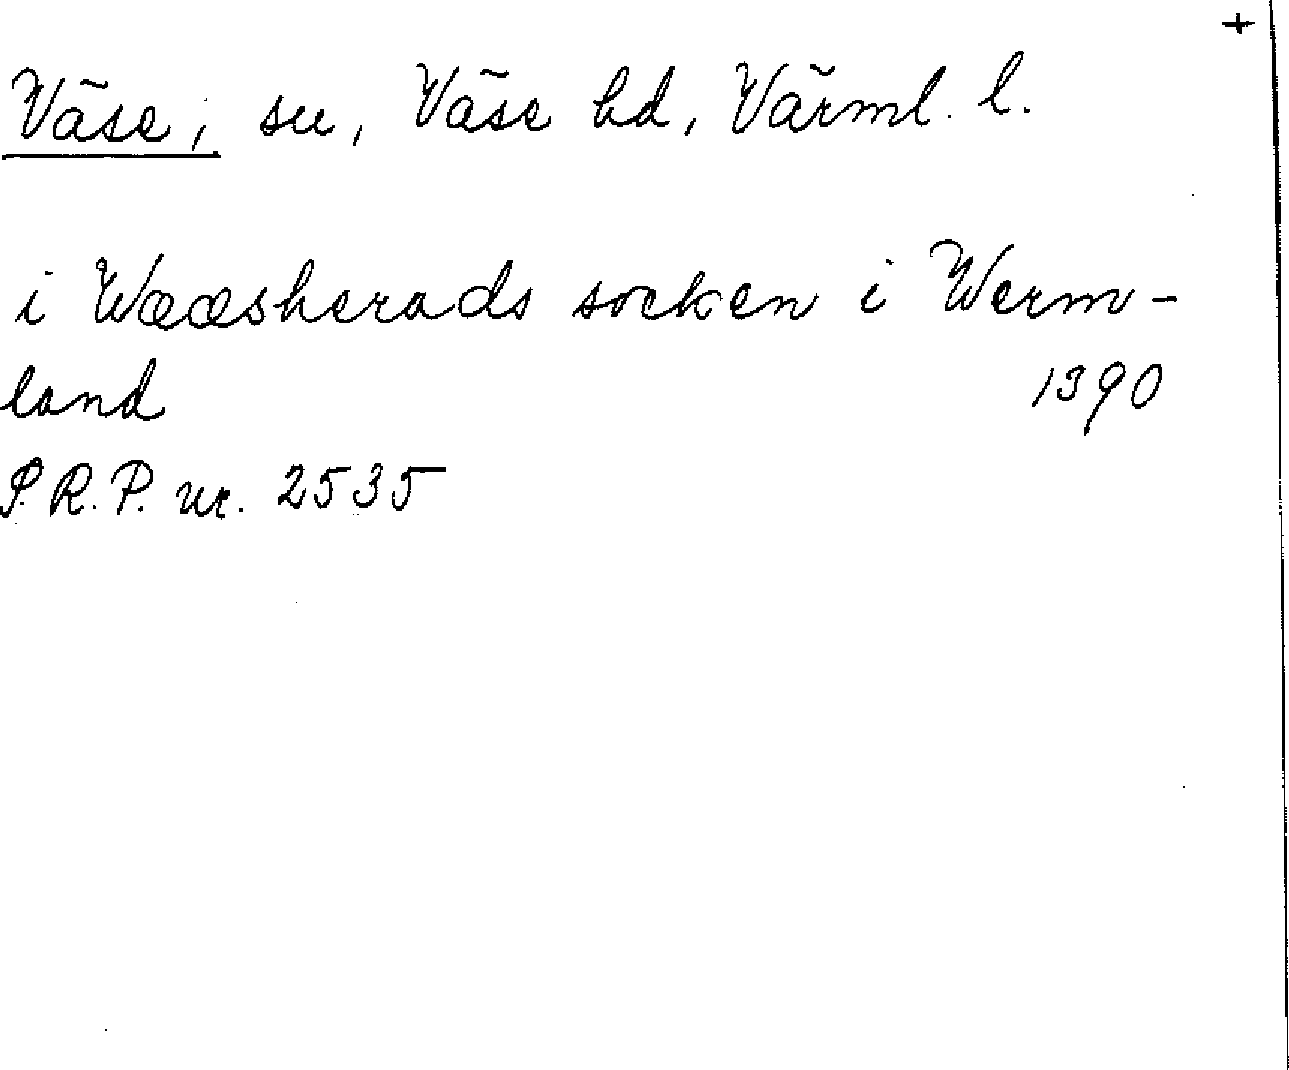 +
Väse, sn, Väse hd, Värml. l.
i Wææsherads socken i Werm-
land 1390
S.R.P. nr. 2535